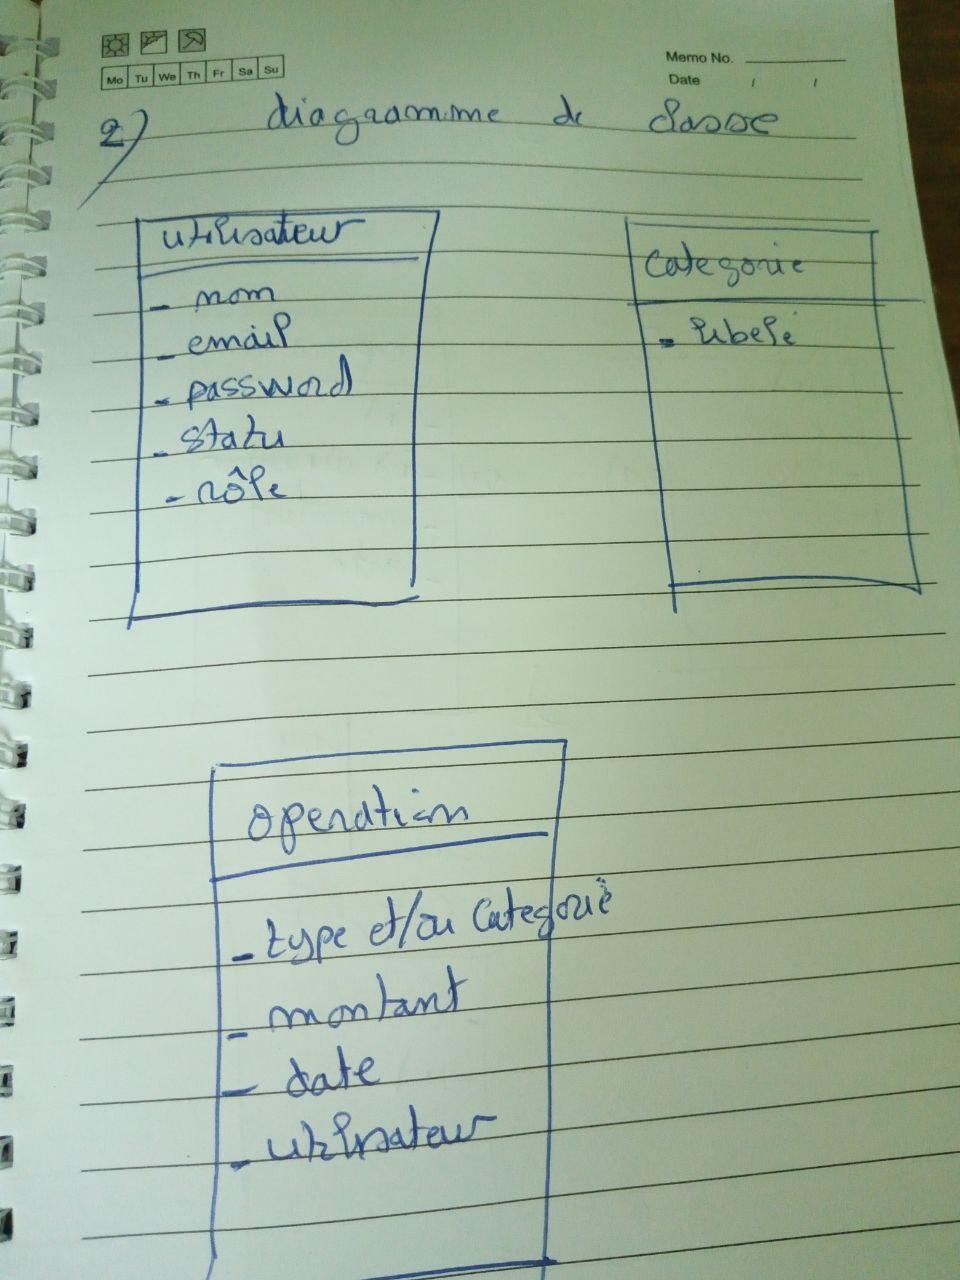 Mo Tu We Th Fr Sa Su
Memo No.
Date / /
2) diagramme de classe
utilisateur
- nom
- email
- password
- statu
- rôle
Categorie
- libelé
operation
- type et/ou Categorie
- montant
- date
- utilisateur